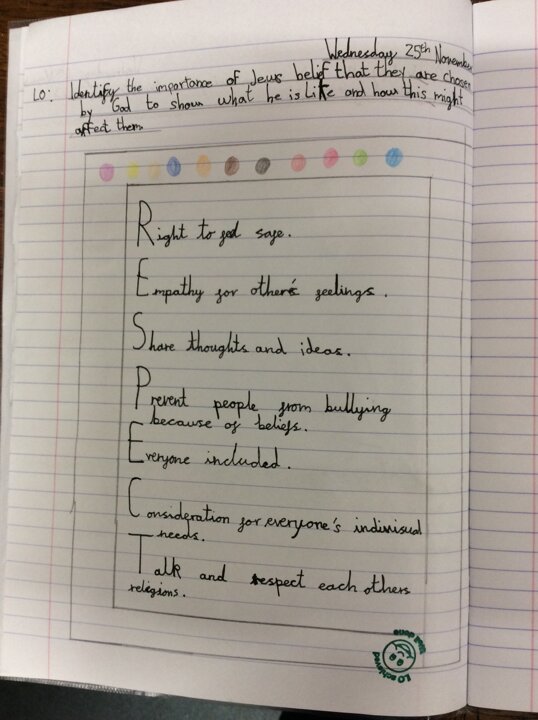 Wednesday 25th November
LO: Identify the importance of Jews belief that they are chosen
by God to show what he is Like and how this might
affect them
Right to feel safe.
Empathy for other's feelings.
Share thoughts and ideas.
Prevent people from bullying
because of beliefs.
Everyone included.
Consideration for everyone's indivisual
needs.
Talk and respect each others
religions.
Well done
LO achieved